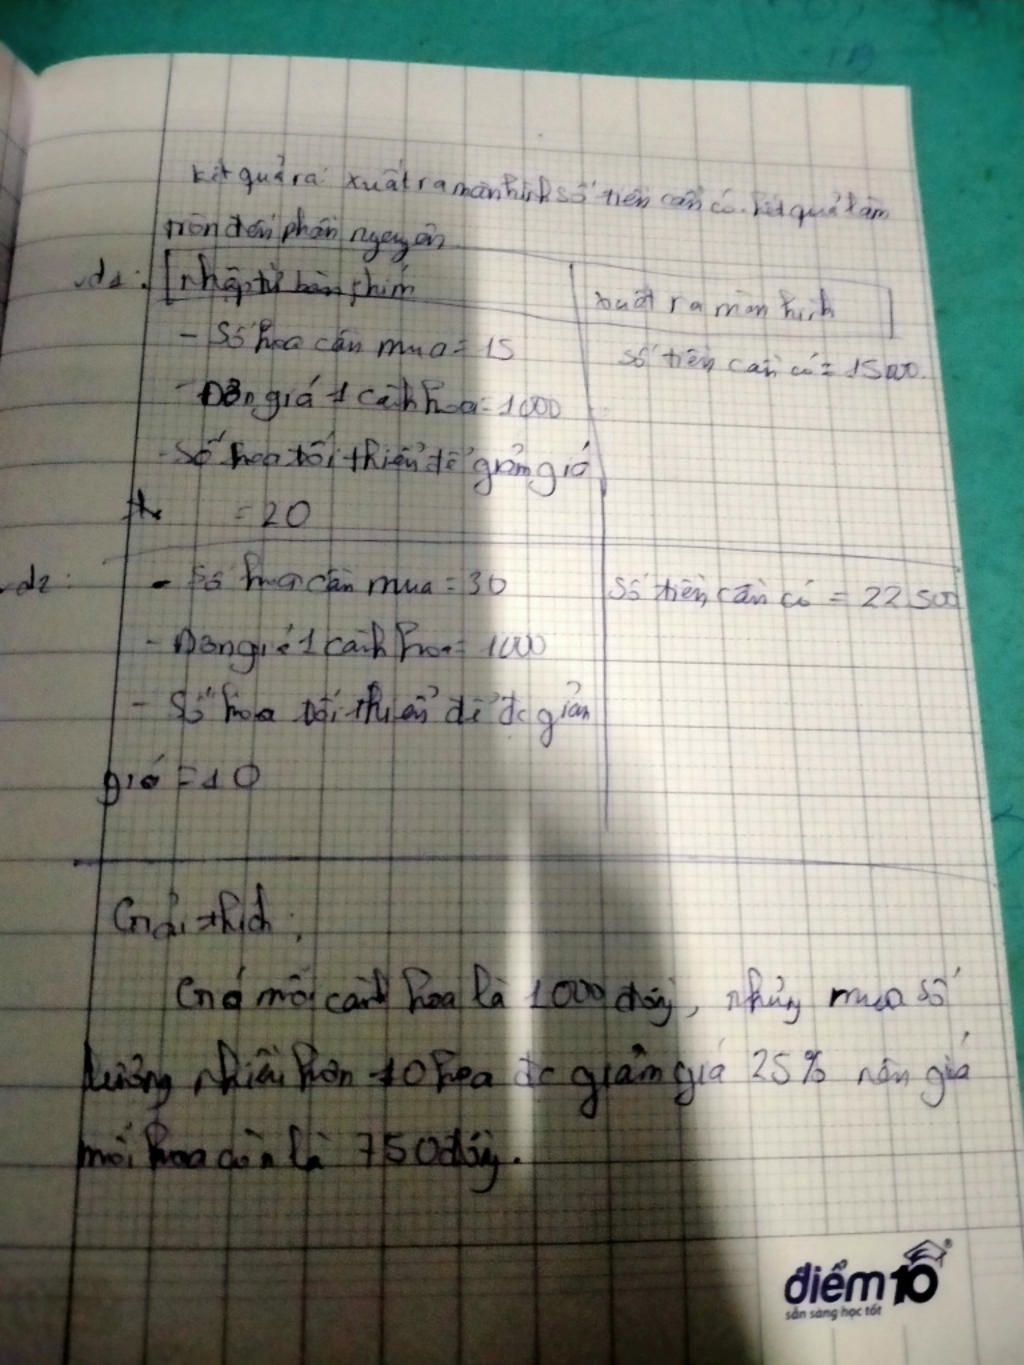 kết quả ra: xuất ra màn hình số tiền cần có. kết quả làm
tròn đến phần nguyên
vd1: nhập từ bàn phím
xuất ra màn hình
- Số hoa cần mua = 15
số tiền cần có = 15000.
- Đơn giá 1 cành hoa = 1000
- Số hoa tối thiểu để giảm giá
= 20
vd2: - Số hoa cần mua = 30
Số tiền cần có = 22500
- Đơn giá 1 cành hoa = 1000
- Số hoa tối thiểu để đc giản
giá = 10
Giải thích:
Giá mỗi cành hoa là 1000 đồng, nhưng mua số
lượng nhiều hơn 10 hoa đc giảm giá 25% nên giá
mỗi hoa còn là 750 đồng.
điểm10
sẵn sàng học tốt